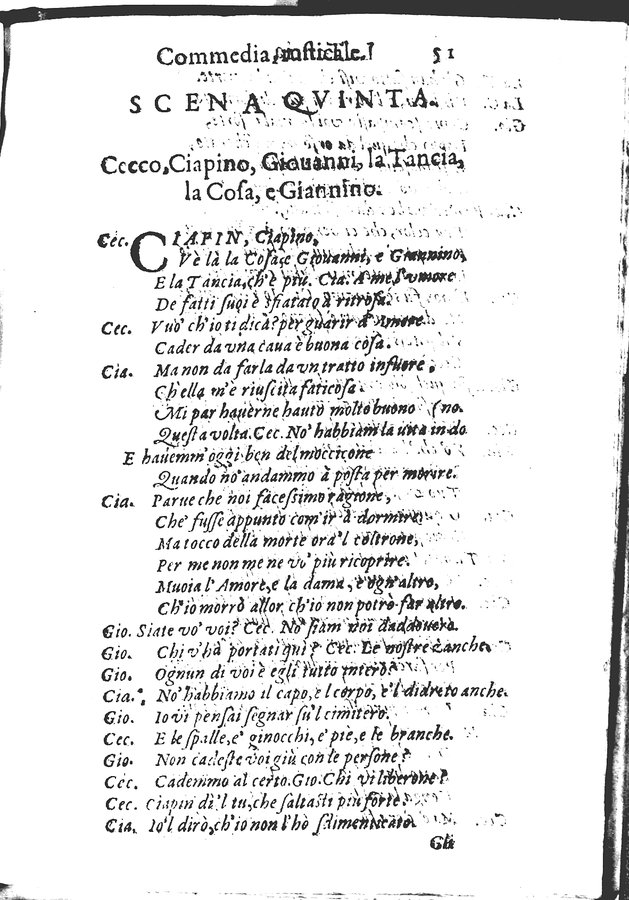 Commedia rusticale. 51
SCENA QVINTA.
Cecco, Ciapino, Giouanni, la Tancia,
la Cosa, e Giannino.
Cec. CIAPIN, Ciapino,
Vè là la Cosa, e Giouanni, e Giannino,
E la Tancia, ch'è più. Cia. A me l'umore
De fatti suoi è sfiatato à ritrosa.
Cec. Vuo' ch'io ti dica? per guarir d'Amore
Cader da vna caua è buona cosa.
Cia. Ma non da farla da vn tratto infuore,
Ch'ella m'è riuscita faticosa.
Mi par hauerne hauto molto buono (no.
Questa volta. Cec. No' habbiam la uita in do
E hauemm'oggi ben del moccicone
Quando nò andammo à posta per morire.
Cia. Parue che noi facessimo ragione,
Che fusse appunto com'ir à dormire:
Ma tocco della morte ora'l coltrone,
Per me non me ne vo' più ricoprire.
Muoia l'Amore, e la dama, e ogn'altro,
Ch'io morrò allor, ch'io non potrò far altro.
Gio. Siate vo' voi? Cec. No' siam noi daddouero.
Gio. Chi v'hà portati quì? Cec. Le nostre zanche.
Gio. Ognun di voi è egli tutto intero?
Cia. No' habbiamo il capo, e'l corpo, e'l didreto anche.
Gio. Io vi pensai segnar su'l cimitero.
Cec. E le spalle, e' ginocchi, e' piè, e le branche.
Gio. Non cadeste voi giù con le persone?
Cec. Cademmo al certo. Gio. Chi vi liberone?
Cec. Ciapin dì'l tu, che saltasti più forte.
Cia. Io'l dirò, ch'io non l'hò sdimenticato.
Gli